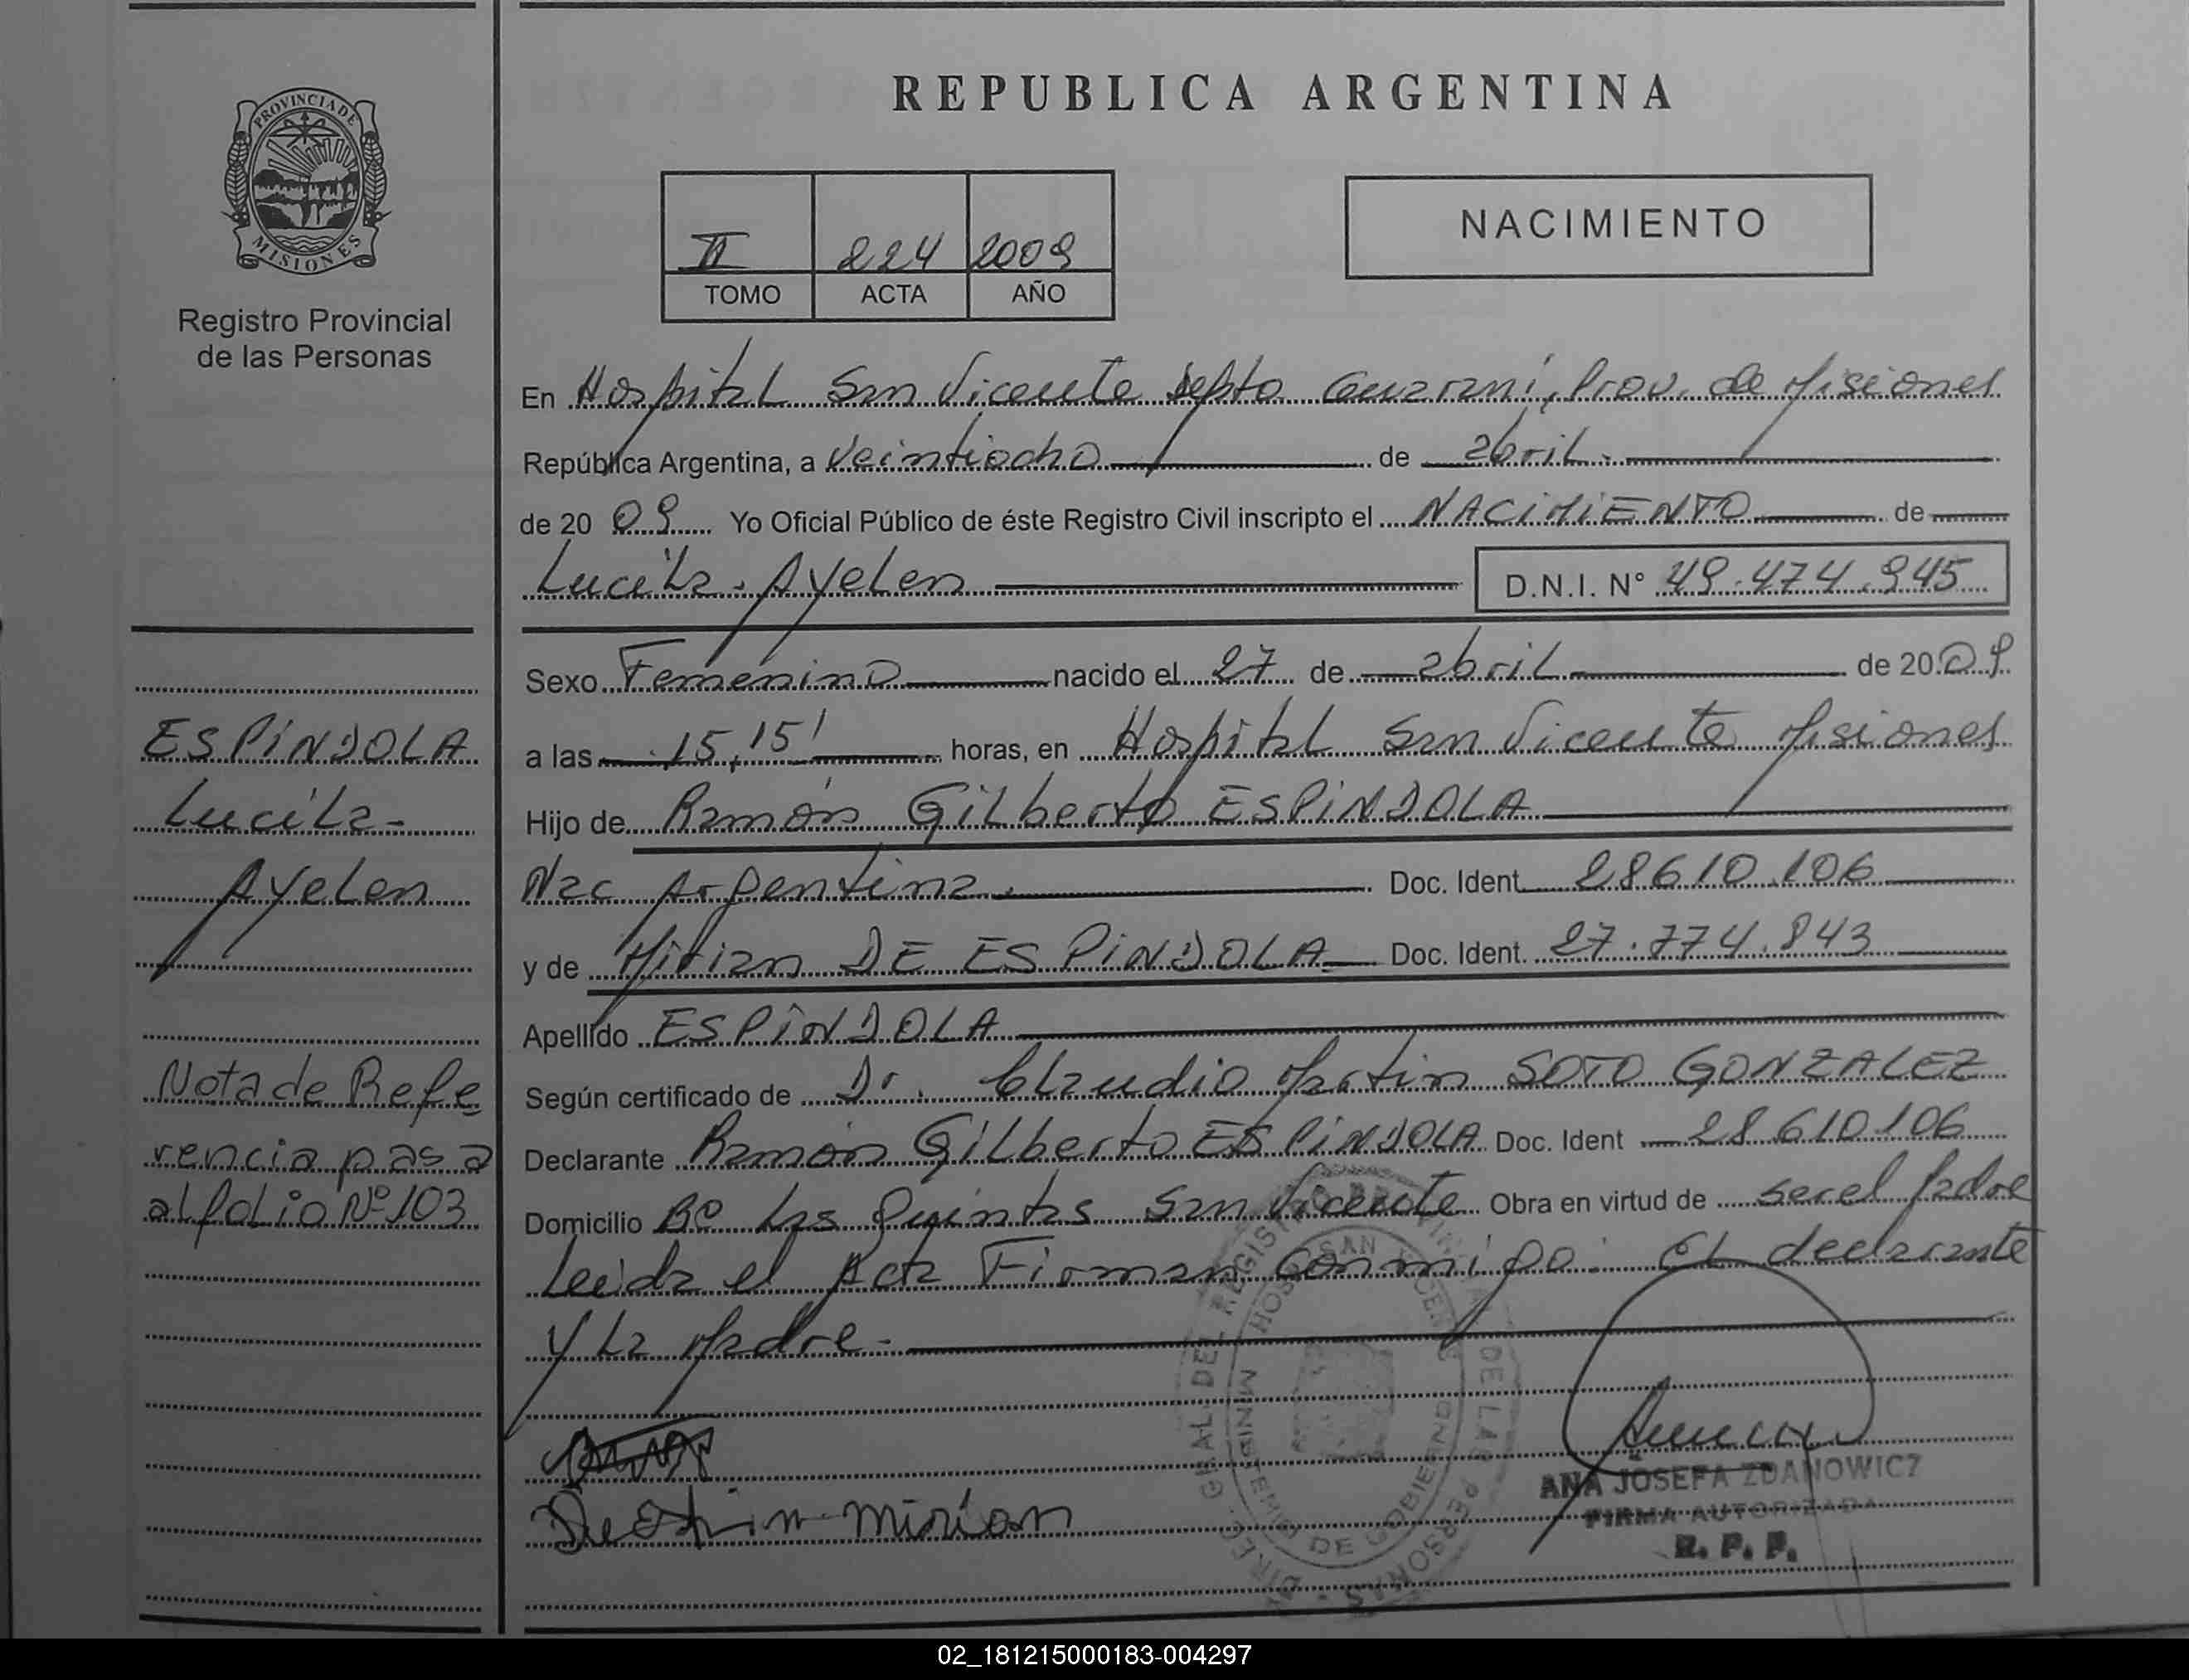 PROVINCIA DE
MISIONES
Registro Provincial
de las Personas
REPUBLICA ARGENTINA
II 224 2009
TOMO ACTA AÑO
NACIMIENTO
En Hospital San Vicente Depto Guaraní, Prov. de Misiones
República Argentina, a Veintiocho de abril.
de 20 09 Yo Oficial Público de éste Registro Civil inscripto el NACIMIENTO de
Lucila Ayelen D.N.I. N° 49.474.945
Sexo Femenino nacido el 27 de abril de 20 09
a las 15,15' horas, en Hospital San Vicente Misiones
Hijo de Ramón Gilberto ESPINDOLA
Nac Argentina. Doc. Ident. 28610.106
y de Mirian DE ESPINDOLA Doc. Ident. 27.774.843
Apellido ESPINDOLA
Según certificado de Dr. Claudio Martin SOTO GONZALEZ
Declarante Ramón Gilberto ESPINDOLA Doc. Ident 28610106
Domicilio Bº Las Quintas San Vicente Obra en virtud de ser el Padre
Leida el Acta Firman conmigo: EL declarante
y La Madre.
Mirian
ANA JOSEFA ZDANOWICZ
FIRMA AUTORIZADA
R. P. P.
DIREC. GRAL. DEL REGISTRO PROVINCIAL DE LAS PERSONAS
HOSP. SAN VICENTE
MINISTERIO DE GOBIERNO
ESPINDOLA
Lucila-
Ayelen
Nota de Refe
rencia pasa
al folio Nº 103
02_181215000183-004297